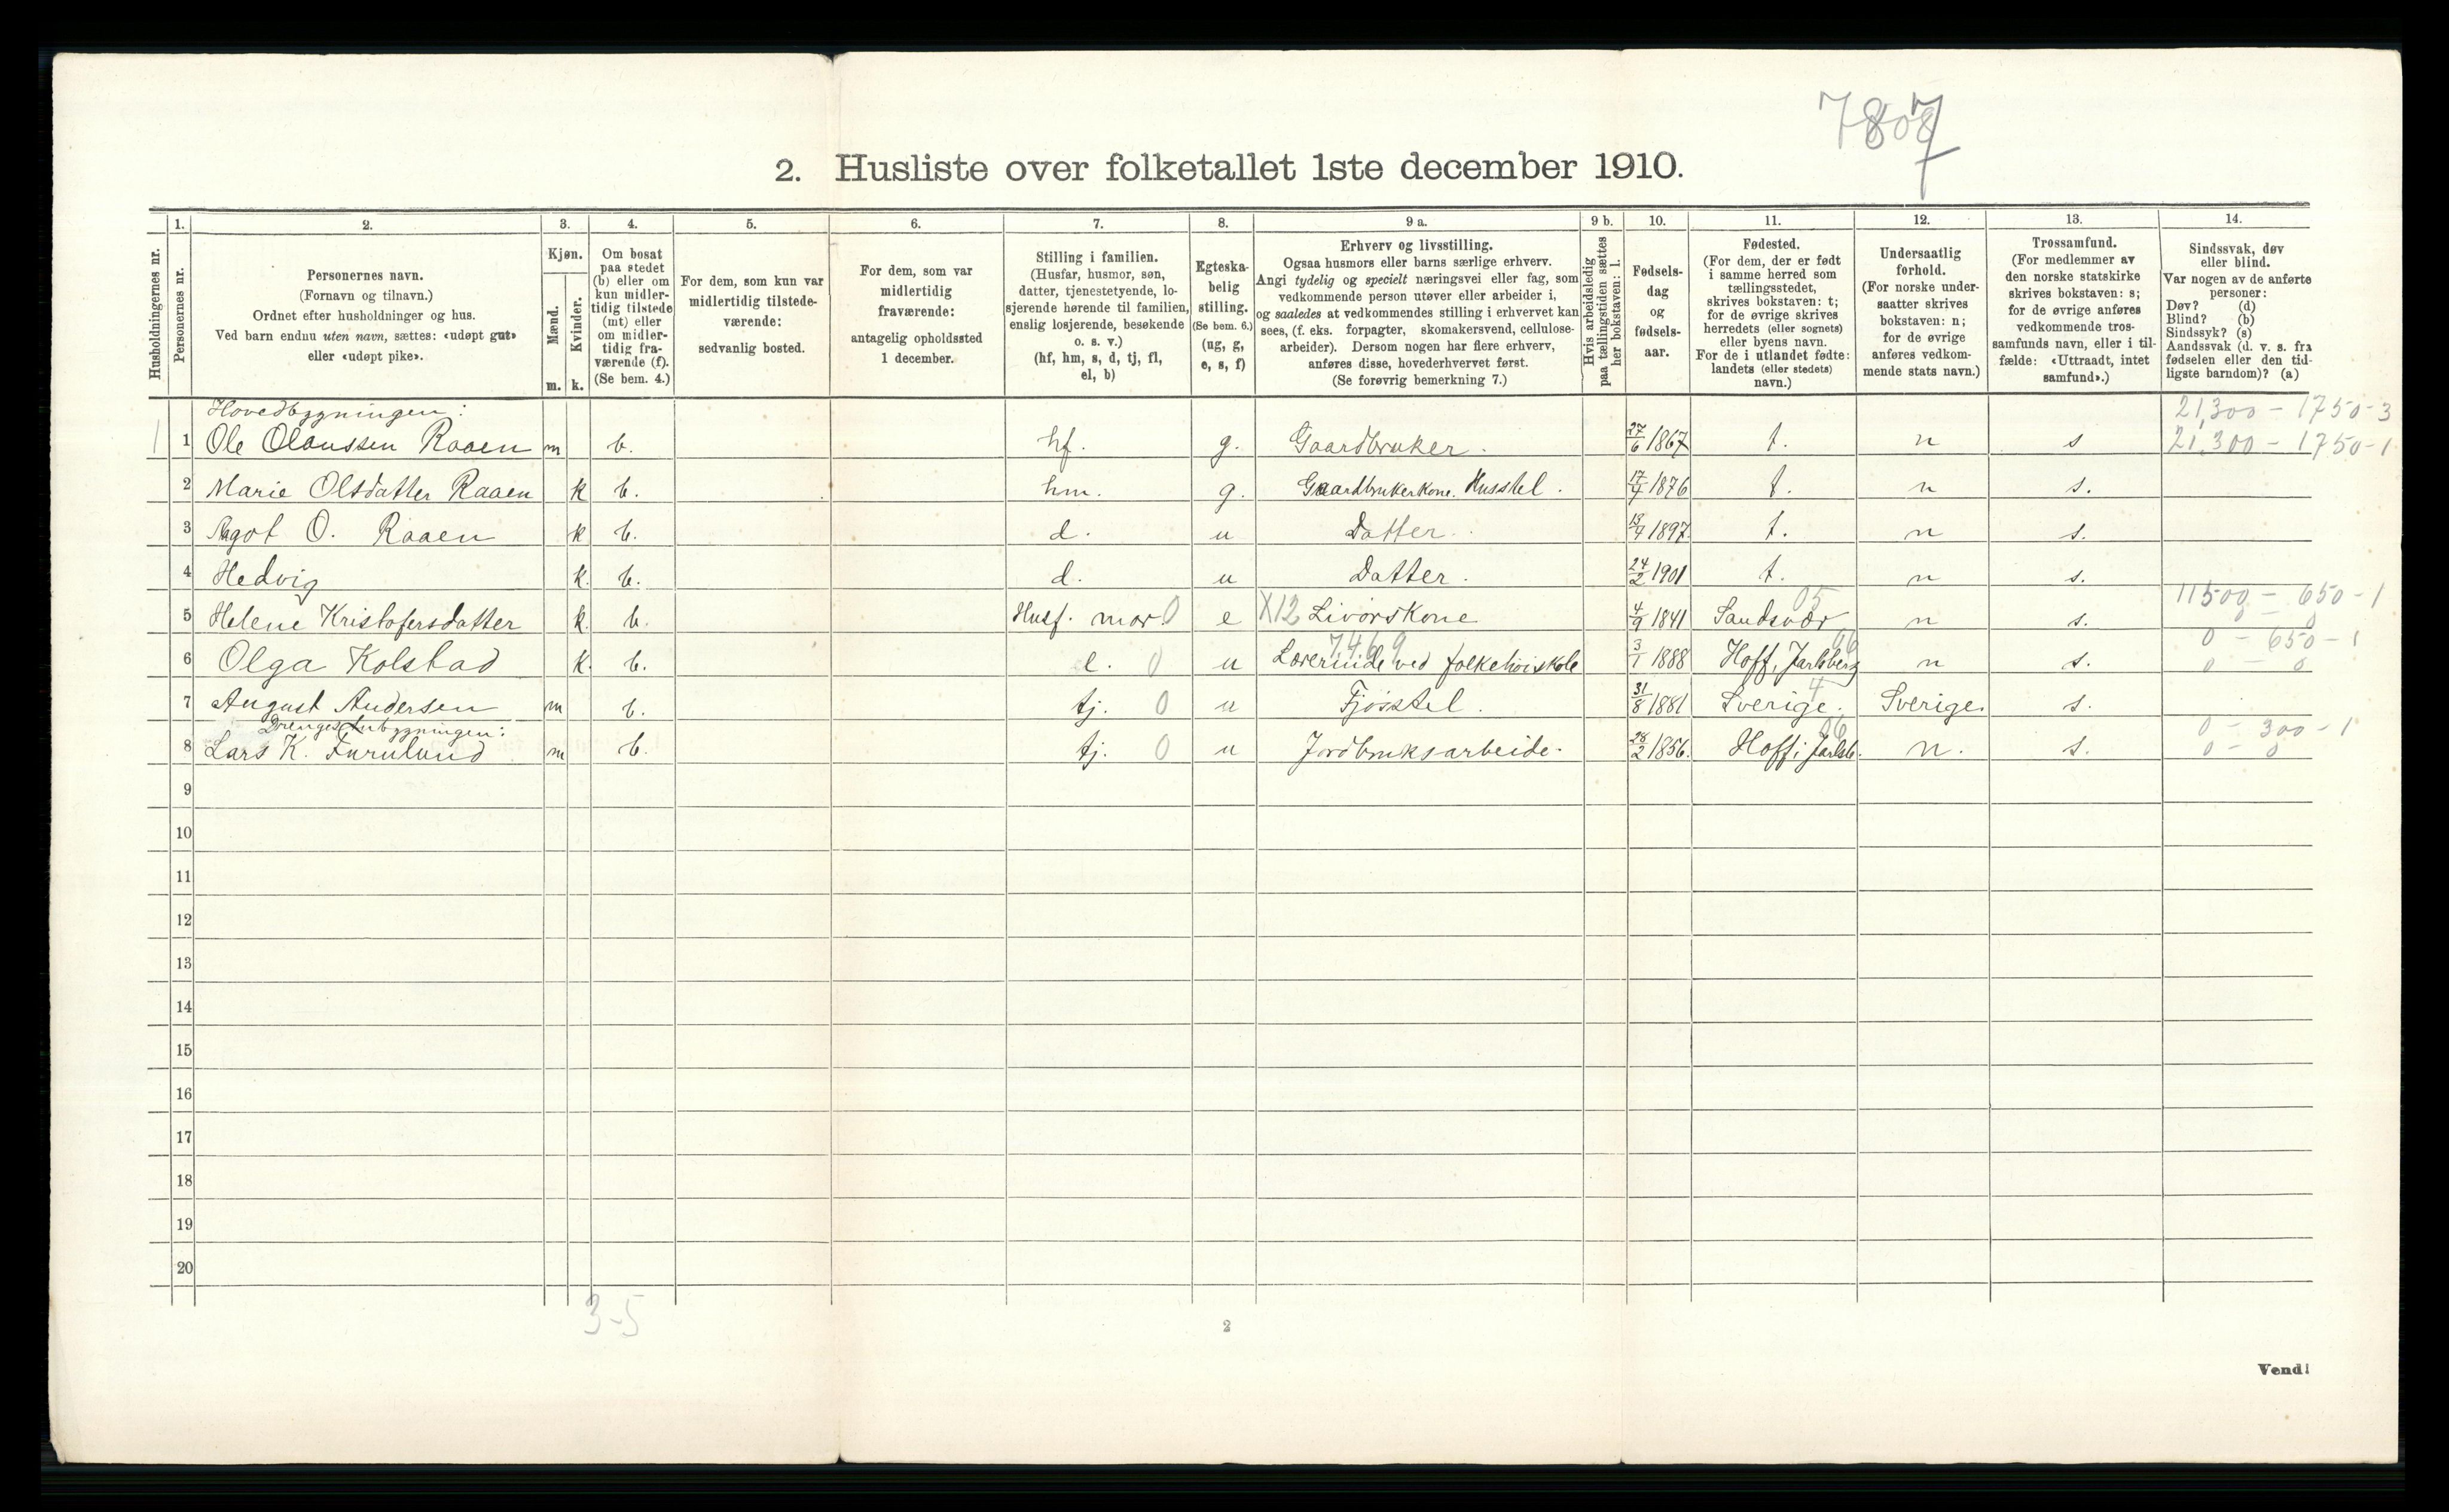 7807
2. Husliste over folketallet 1ste december 1910.
Husholdningernes nr.
1. Personernes nr.
2. Personernes navn.
(Fornavn og tilnavn.)
Ordnet efter husholdninger og hus.
Ved barn endnu uten navn, sættes: «udøpt gut»
eller «udøpt pike».
3. Kjøn.
Mænd. m.
Kvinder. k.
4. Om bosat
paa stedet
(b) eller om
kun midler-
tidig tilstede
(mt) eller
om midler-
tidig fra-
værende (f).
(Se bem. 4.)
5. For dem, som kun var
midlertidig tilstede-
værende:
sedvanlig bosted.
6. For dem, som var
midlertidig
fraværende:
antagelig opholdssted
1 december.
7. Stilling i familien.
(Husfar, husmor, søn,
datter, tjenestetyende, lo-
sjerende hørende til familien,
enslig losjerende, besøkende
o. s. v.)
(hf, hm, s, d, tj, fl,
el, b)
8. Egteska-
belig
stilling.
(Se bem. 6.)
(ug, g,
e, s, f)
9 a. Erhverv og livsstilling.
Ogsaa husmors eller barns særlige erhverv.
Angi tydelig og specielt næringsvei eller fag, som
vedkommende person utøver eller arbeider i,
og saaledes at vedkommendes stilling i erhvervet kan
sees, (f. eks. forpagter, skomakersvend, cellulose-
arbeider). Dersom nogen har flere erhverv,
anføres disse, hovederhvervet først.
(Se forøvrig bemerkning 7.)
9 b. Hvis arbeidsledig
paa tællingstiden sættes
her bokstaven: l.
10. Fødsels-
dag
og
fødsels-
aar.
11. Fødested.
(For dem, der er født
i samme herred som
tællingsstedet,
skrives bokstaven: t;
for de øvrige skrives
herredets (eller sognets)
eller byens navn.
For de i utlandet fødte:
landets (eller stedets)
navn.)
12. Undersaatlig
forhold.
(For norske under-
saatter skrives
bokstaven: n;
for de øvrige
anføres vedkom-
mende stats navn.)
13. Trossamfund.
(For medlemmer av
den norske statskirke
skrives bokstaven: s;
for de øvrige anføres
vedkommende tros-
samfunds navn, eller i til-
fælde: «Uttraadt, intet
samfund».)
14. Sindssvak, døv
eller blind.
Var nogen av de anførte
personer:
Døv? (d)
Blind? (b)
Sindssyk? (s)
Aandssvak (d. v. s. fra
fødselen eller den tid-
ligste barndom)? (a)
Hovedbygningen: 21,300 - 1750-3
1 1 Ole Olaussen Raaen m b. hf. g. Gaardbruker. 27/6 1867 t. n s 21,300 - 1750-1
2 Marie Olsdatter Raaen k b. hm. g. Gaardbrukerkone. Husstel. 17/7 1876 t. n s.
3 Aagot O. Raaen k b. d. u Datter. 13/9 1897 t. n s.
4 Hedvig k. b. d. u Datter. 24/2 1901 t. n s.
05 11500 - 650-1
5 Helene Kristofersdatter k. b. Husf. mor 0 e X12 Livørskone 4/9 1841 Sandsvær n s. 0 0
7469 06 0 - 650-1
6 Olga Kolstad k. b. l. 0 u Lærerinde ved folkehøiskole 3/1 1888 Hoff, Jarlsberg n s. 0 - 0
4
7 August Andersen m b. tj. 0 u Fjøsstel. 31/8 1881 Sverige. Sverige. s.
Drengestubygningen: 06 0 - 300-1
8 Lars K. Furulund m b. tj. 0 u Jordbruksarbeide. 28/2 1856. Hoff i Jarlsb. n. s. 0 - 0
9
10
11
12
13
14
15
16
17
18
19
20
3-5
2
Vend!